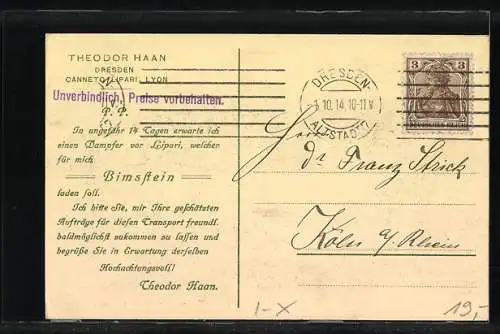 THEODOR HAAN
DRESDEN
CANNETO-LIPARI, LYON
Unverbindlich, Preise vorbehalten.
In ungefähr 14 Tagen erwarte ich
einen Dampfer vor Lipari, welcher
für mich
Bimsstein
laden soll.
Ich bitte Sie, mir Ihre geschätzten
Aufträge für diesen Transport freundl.
baldmöglichst zukommen zu lassen und
begrüße Sie in Erwartung derselben
Hochachtungsvoll!
Theodor Haan.
DRESDEN-
10.14.10-11V
ALTSTADT
3 3
DEUTSCHES REICH
Herrn
Dr. Franz Strick
Köln a/Rhein
I-X
19,-